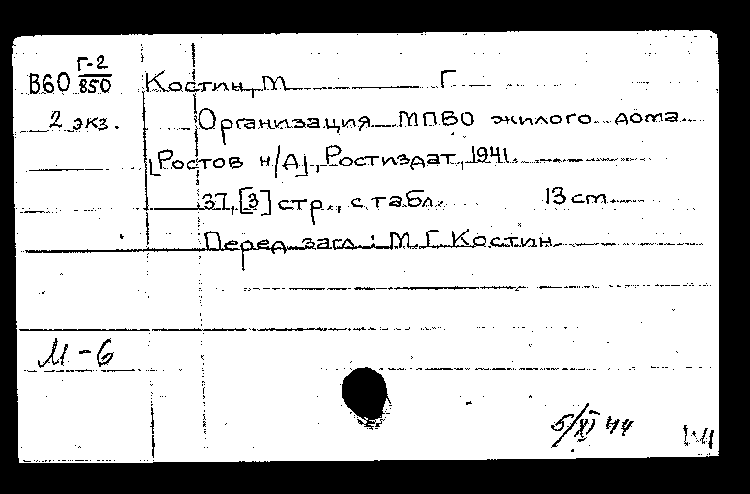 Г-2
В60 850 Костин, М Г
2 экз. Организация МПВО жилого дома
[Ростов н/Д], Ростиздат, 1941.
37, [3] стр., с табл. 13 см.
Перед загл.: М. Г. Костин
М-6
5/XI 44